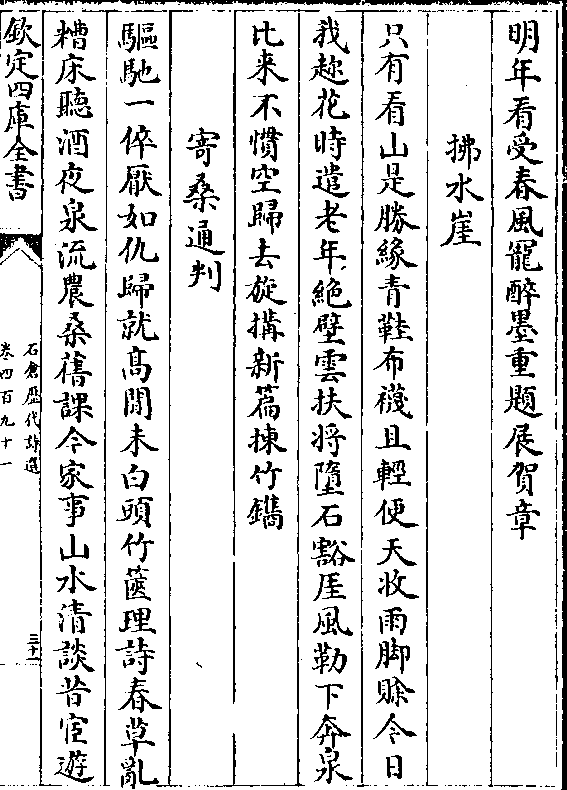 明年看受春風寵醉墨重題展賀章
拂水崖
只有看山是勝緣青鞋布襪且輕便天收雨脚賖今日
我趂花時遣老年絶壁雲扶将墮石豁厓風勒下奔泉
比来不慣空歸去旋搆新篇揀竹鐫
寄桑通判
驅馳一倅厭如仇歸就髙閒未白頭竹篋理詩春草亂
糟床聽酒夜泉流農桑舊課今家事山水清談昔宦遊
欽定四庫全書
石倉歴代詩選
卷四百九十一
三十一